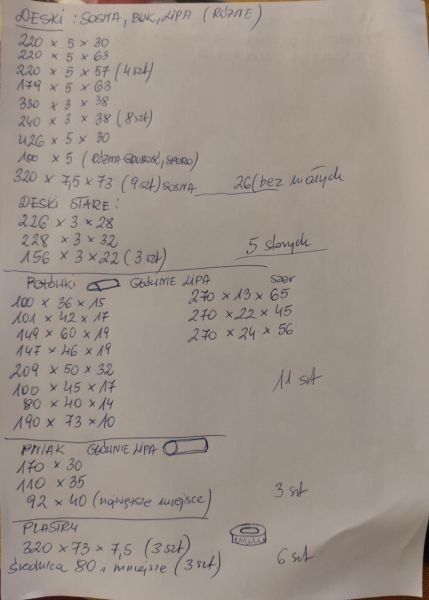 DESKI : SOSNA, BUK, LIPA (RÓŻNE)
220 x 5 x 30
220 x 5 x 63
220 x 5 x 57 (4szt)
179 x 5 x 63
330 x 3 x 38
240 x 3 x 38 (8szt)
426 x 5 x 30
100 x 5 (RÓŻNA GRUBOŚĆ, SPORO)
320 x 7,5 x 73 (9szt) SOSNA
26 (bez małych
DESKI STARE :
226 x 3 x 28
228 x 3 x 32
156 x 3 x 22 (3szt)
5 starych
POŁÓWKI GŁÓWNIE LIPA
100 x 36 x 15
101 x 42 x 17
149 x 60 x 19
147 x 46 x 19
209 x 50 x 32
100 x 45 x 17
80 x 40 x 14
190 x 73 x 10
szer
270 x 13 x 65
270 x 22 x 45
270 x 24 x 56
11 szt
PNIAK GŁÓWNIE LIPA
170 x 30
110 x 35
92 x 40 (największe miejsce)
3 szt
PLASTRY
320 x 73 x 7,5 (3szt)
średnica 80 i mniejsze (3szt)
6 szt